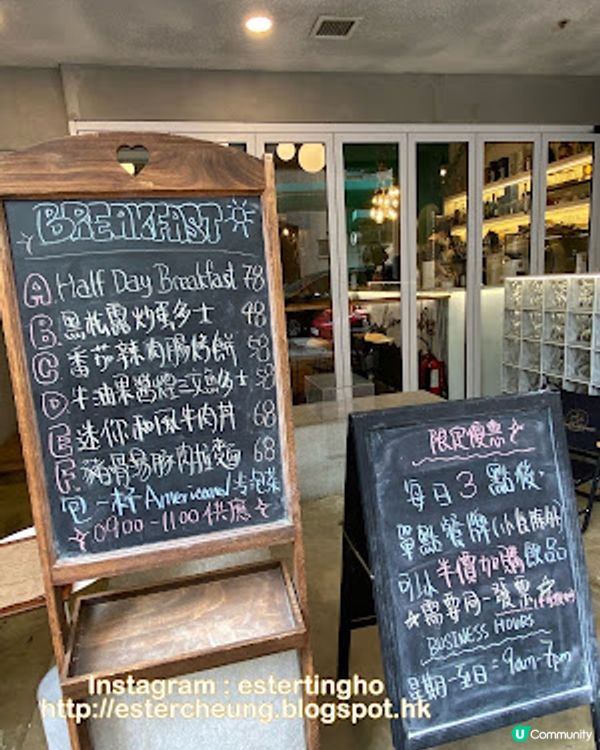 BREAKFAST
A. Half Day Breakfast 78
B. 黑松露炒蛋多士 48
C. 番茄辣肉腸烤餅 58
D. 牛油果醬煙三文魚多士 58
E. 迷你和風牛肉丼 68
F. 豬骨湯豚肉拉麵 68
包一杯Americano/
0900-1100供應
限定優惠
每日3點後
單點餐牌(小食除外)
可以半價加購飲品
需要同一發票
BUSINESS HOURS
星期一至日=9am-7pm
Instagram : estertingho
http://estercheung.blogspot.hk
U Community